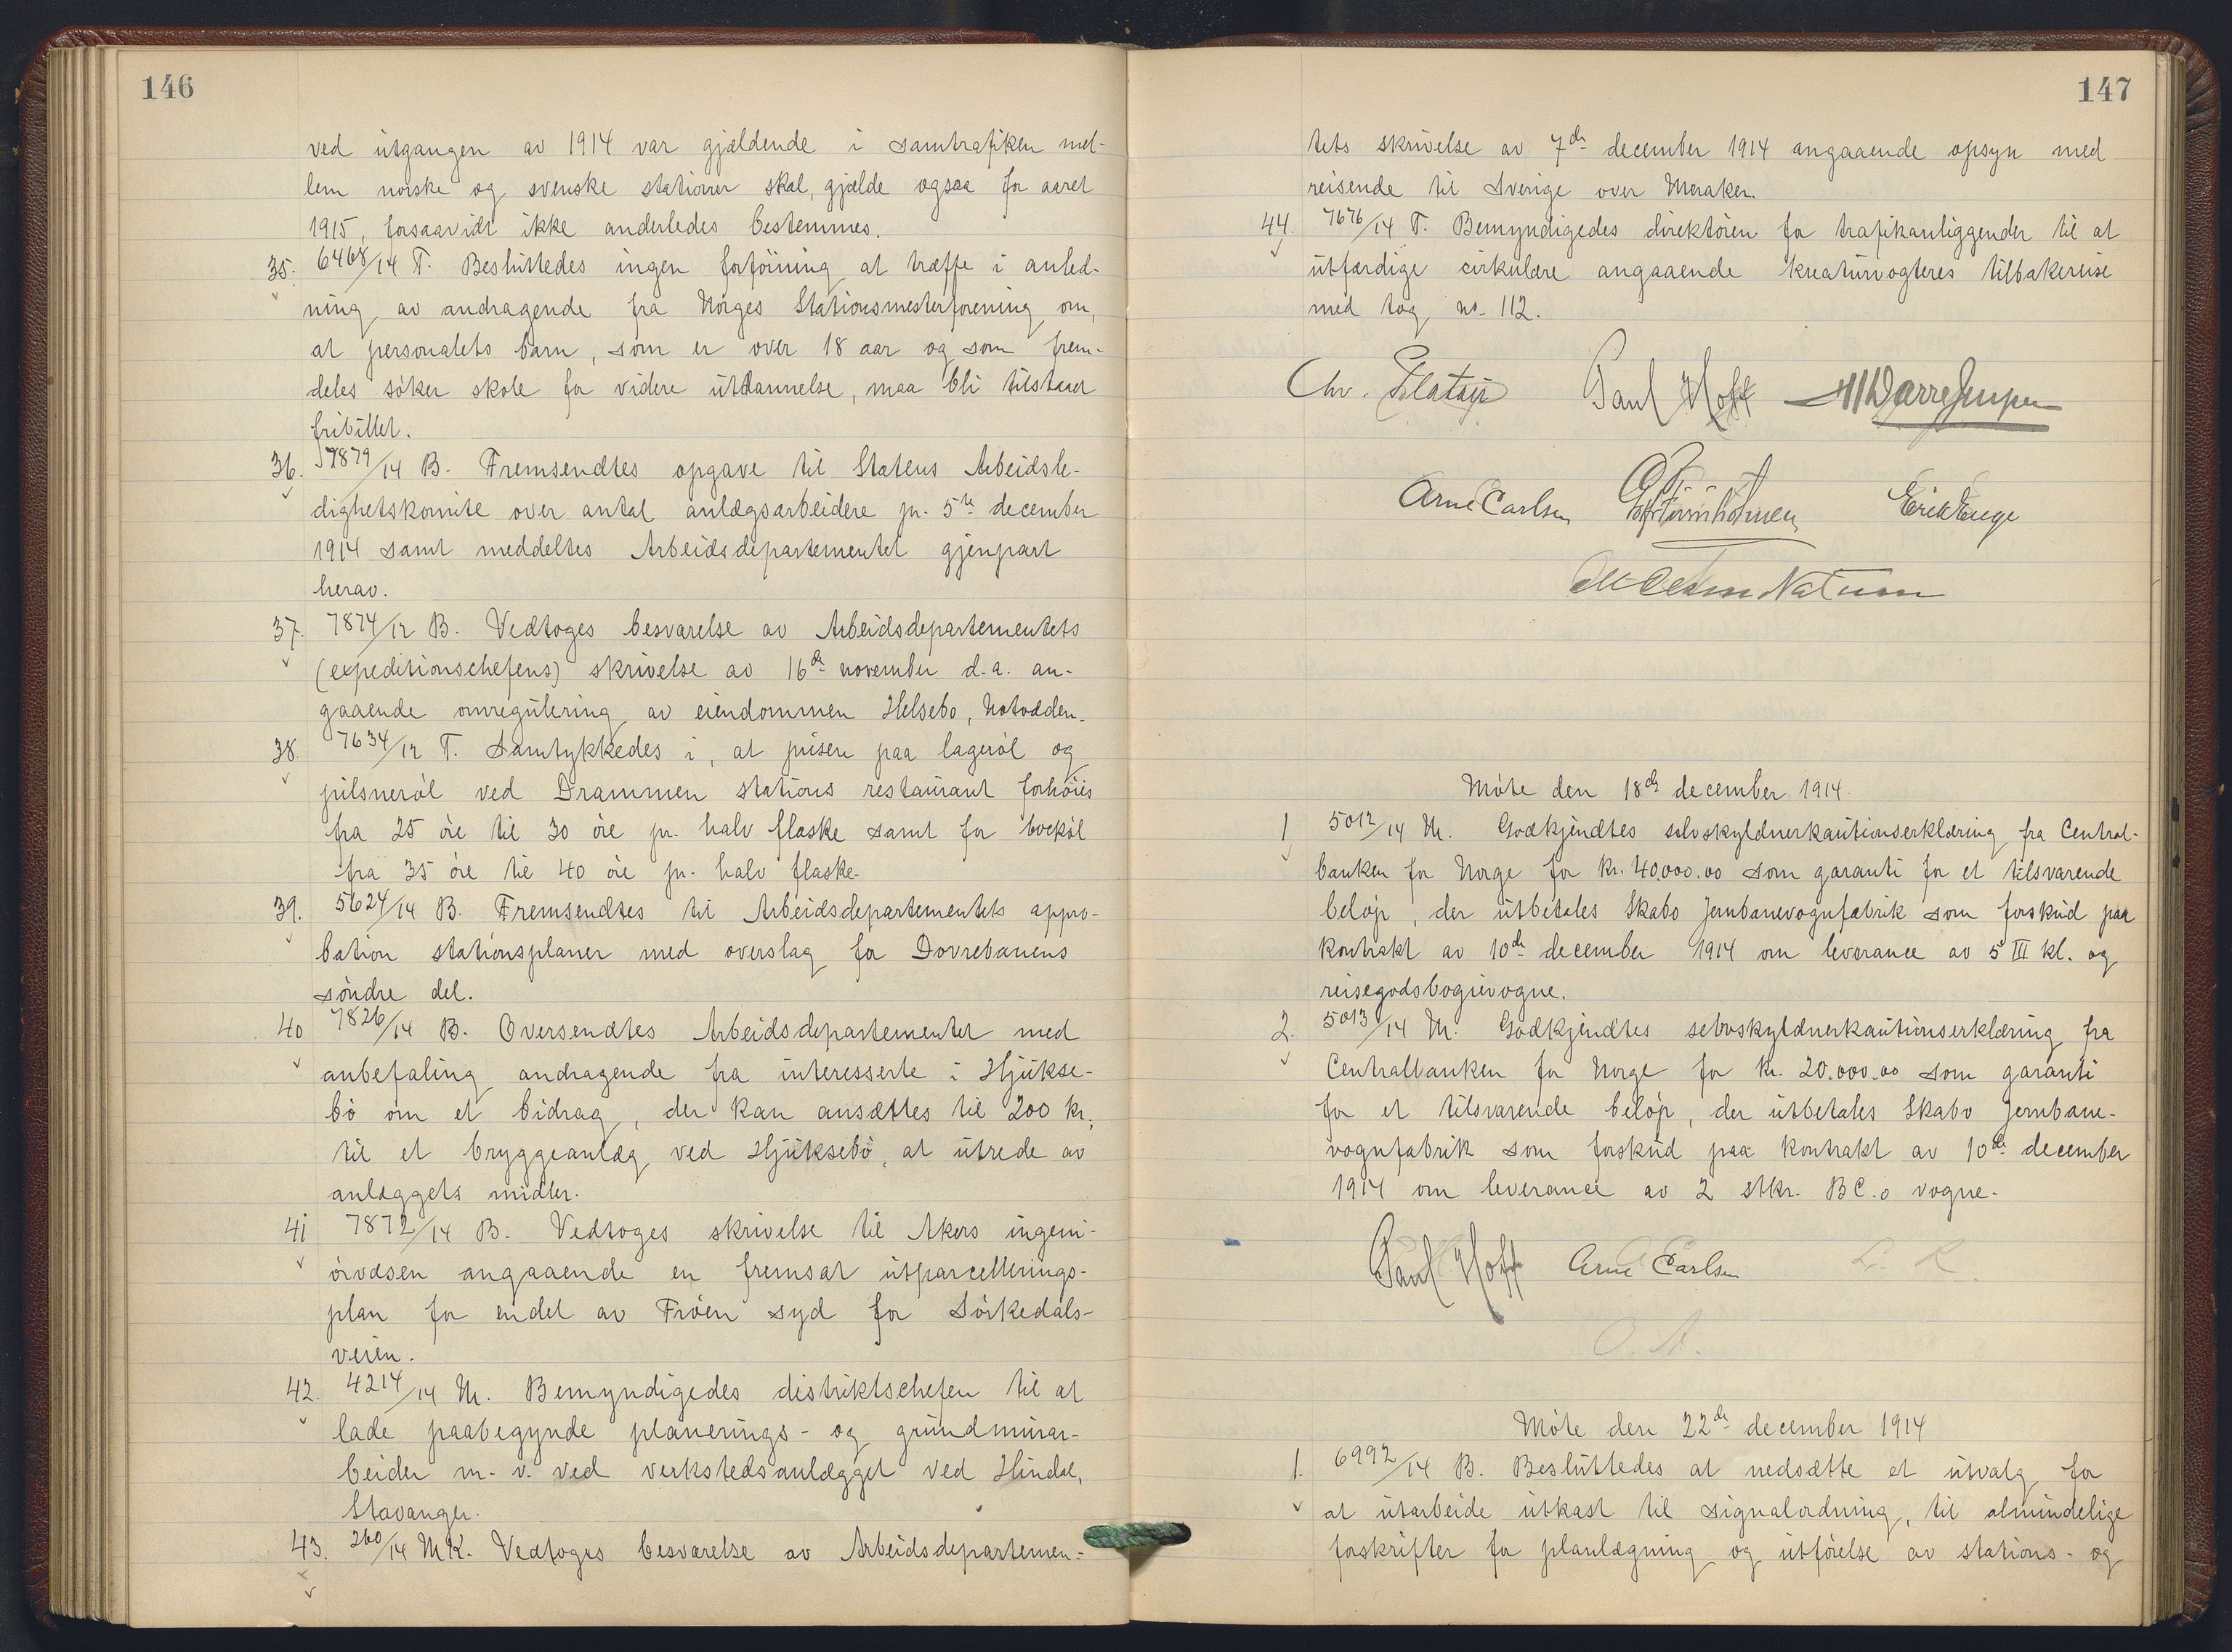 146
ved utgangen av 1914 var gjældende i samtrafiken mel-
lem norske og svenske stationer skal gjælde ogsaa for aaret
1915, forsaavidt ikke anderledes bestemmes.
35. 6468/14 T. Besluttedes ingen forföining at træffe i anled-
ning av andragende fra Norges Stationsmesterforening om,
at personalets barn, som er over 18 aar og som frem-
deles söker skole for videre utdannelse, maa bli tilstaaet
fribillet.
36. 7879/14 B. Fremsendtes opgave til Statens Arbeidsle-
dighetskomite over antal anlægsarbeidere pr. 5te december
1914 samt meddeltes Arbeidsdepartementet gjenpart
herav.
37. 7874/12 B. Vedtoges besvarelse av Arbeidsdepartementets
(expeditionschefens) skrivelse av 16de november d.a. an-
gaaende omregulering av eiendommen Helsebo, Notodden.
38. 7634/12 T. Samtykkedes i, at prisen paa lageröl og
pilsneröl ved Drammen stations restaurant forhöies
fra 25 öre til 30 öre pr. halv flaske samt for boköl
fra 35 öre til 40 öre pr. halv flaske.
39. 5624/14 B. Fremsendtes til Arbeidsdepartementets appro-
bation stationsplaner med overslag for Dovrebanens
söndre del.
40 7826/14 B. Oversendtes Arbeidsdepartementet med
anbefaling andragende fra interesserte i Hjukse-
bö om et bidrag, der kan ansættes til 200 kr,
til et bryggeanlæg ved Hjuksebö, at utrede av
anlæggets midler.
41 7872/14 B. Vedtoges skrivelse til Akers ingeni-
örvæsen angaaende en fremsat utparcellerings-
plan for endel av Fröen syd for Sörkedals-
veien.
42. 4214/14 M. Bemyndigedes distriktschefen til at
lade paabegynde planerings- og grundmurar-
beider m. v. ved verkstedsanlægget ved Hindal,
Stavanger.
43. 260/14 MK. Vedtoges besvarelse av Arbeidsdepartemen-
147
tets skrivelse av 7de december 1914 angaaende opsyn med
reisende til Sverige over Meraker.
44. 7676/14 T. Bemyndigedes direktören for trafikanliggender til at
utfærdige cirkulære angaaende kreaturvogteres tilbakereise
med tog no. 112.
Chr. Platou Paul Hoff
Arne Carlsen Erik Enge
Møte den 18de december 1914.
1 5012/14 M. Godkjendtes selvskyldnerkautionserklæring fra Central-
banken for Norge for kr. 40.000.00 som garanti for et tilsvarende
belöp, der utbetales Skabo Jernbanevognfabrik som forskud paa
kontrakt av 10de december 1914 om leverance av 5 III kl. og
reisegodsbogievogne.
2. 5013/14 M. Godkjendtes selvskyldnerkautionserklæring fra
Centralbanken for Norge for kr. 20.000.00 som garanti
for et tilsvarende belöp, der utbetales Skabo Jernbane-
vognfabrik som forskud paa kontrakt av 10de december
1914 om leverance av 2 stkr. BC.o vogne.
Paul Hoff Arne Carlsen
Møte den 22de december 1914
1. 6992/14 B. Besluttedes at nedsætte et utvalg for
at utarbeide utkast til signalordning, til almindelige
forskrifter for planlægning og utförelse av stations- og